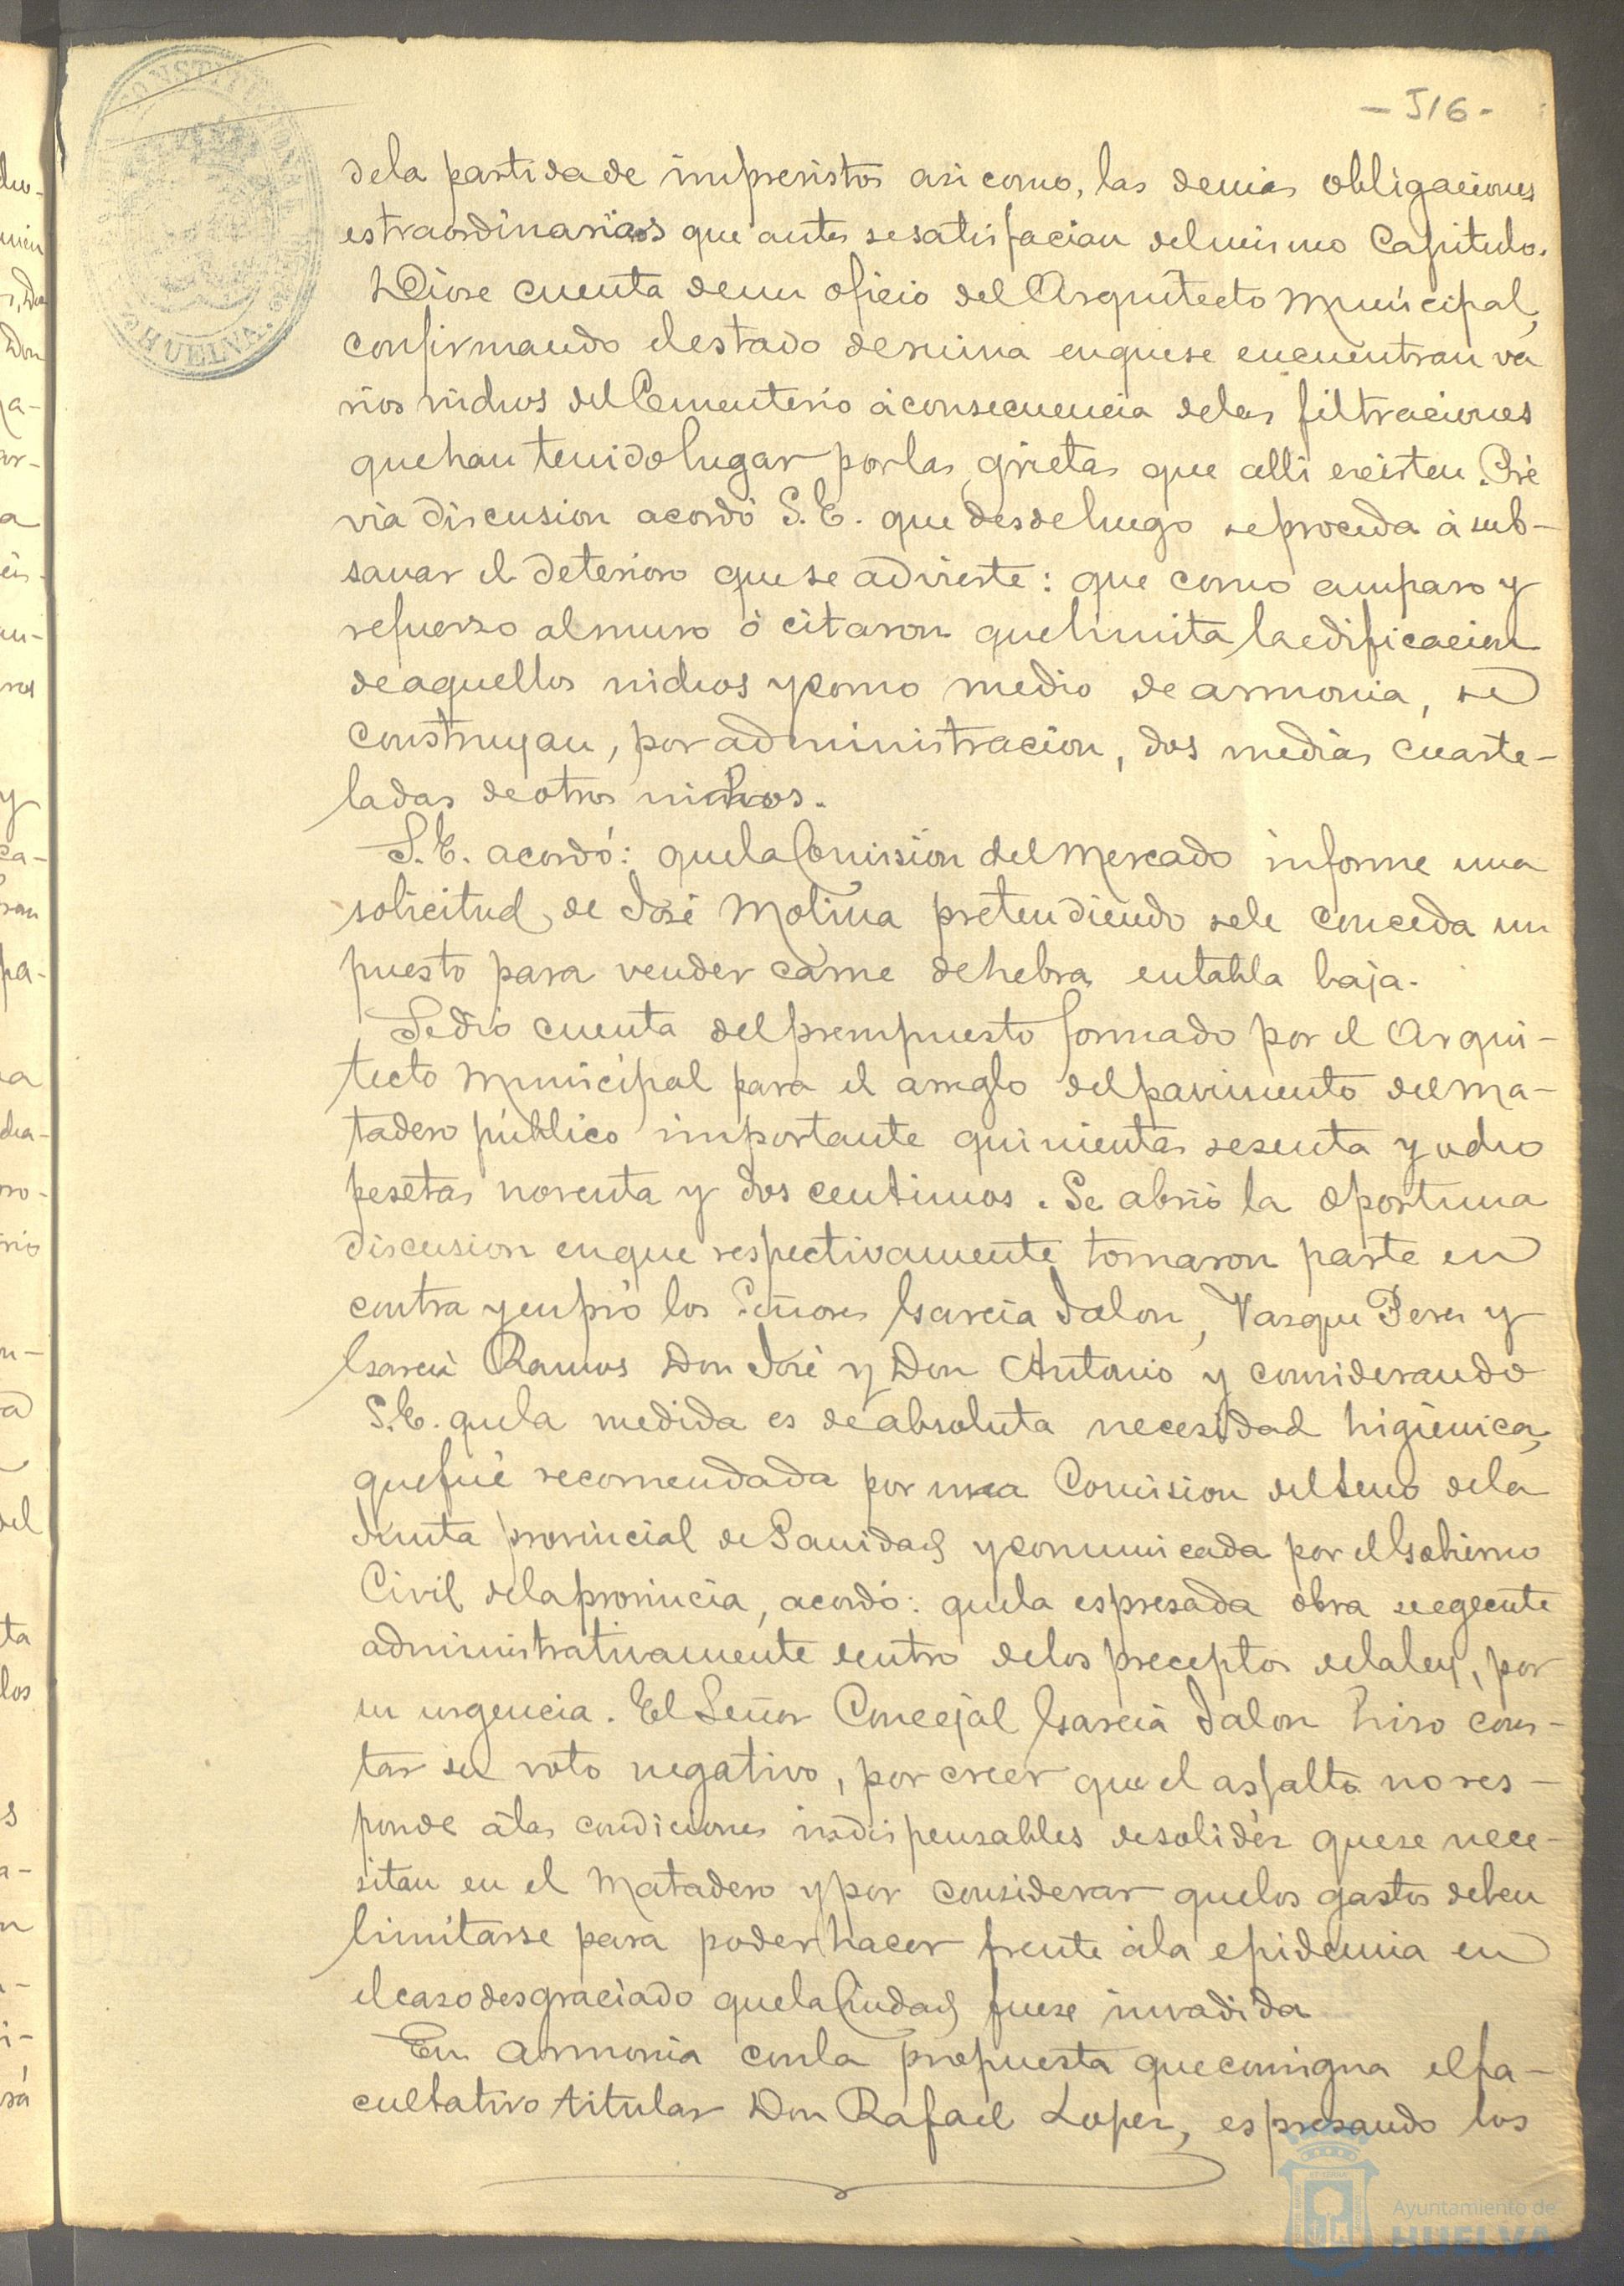 - 516 -
CONSTITUCIONAL
HUELVA.
de la partida de imprevistos asi como, las demas obligaciones
estraordinarias que antes se satisfacian del mismo Capitulo.
Diose cuenta de un oficio del Arquitecto Municipal,
confirmando el estado de ruina en que se encuentran va
rios nichos del Cementerio á consecuencia de las filtraciones
que han tenido lugar por las grietas que alli existen. Pré
via discusion acordó S. E. que desde luego se proceda á sub-
sanar el deterioro que se advierte: que como amparo y
refuerzo al muro ó citaron que limita la edificacion
de aquellos nichos y como medio de armonia, se
construyan, por administracion, dos medias cuarte-
ladas de otros nichos.
S. E. acordó: que la Comision del Mercado informe una
solicitud de José Molina pretendiendo se le conceda un
puesto para vender carne de hebra en tabla baja.
Se dió cuenta del presupuesto formado por el Arqui-
tecto Municipal para el arreglo del pavimento del Ma-
tadero público importante quinientas sesenta y ocho
pesetas noventa y dos centimos. Se abrió la oportuna
discusion en que respectivamente tomaron parte en
contra y en pró los Señores Garcia Jalon, Vazquez Perez y
Garcia Ramos Don José y Don Antonio y considerando
S. E. que la medida es de absoluta necesidad higiénica,
que fué recomendada por una Comision del seno de la
Junta provincial de Sanidad y comunicada por el Gobierno
Civil de la provincia, acordó: que la espresada obra se egecute
administrativamente dentro de los preceptos de la ley, por
su urgencia. El Señor Concejal Garcia Jalon hizo cons-
tar su voto negativo, por creer que el asfalto no res-
ponde á las condiciones indispensables de solidéz que se nece-
sitan en el Matadero y por considerar que los gastos deben
limitarse para poder hacer frente á la epidemia en
el caso desgraciado que la Ciudad fuese invadida
En armonia con la propuesta que consigna el fa-
cultativo titular Don Rafael Lopez, espresando los
Ayuntamiento de
HUELVA